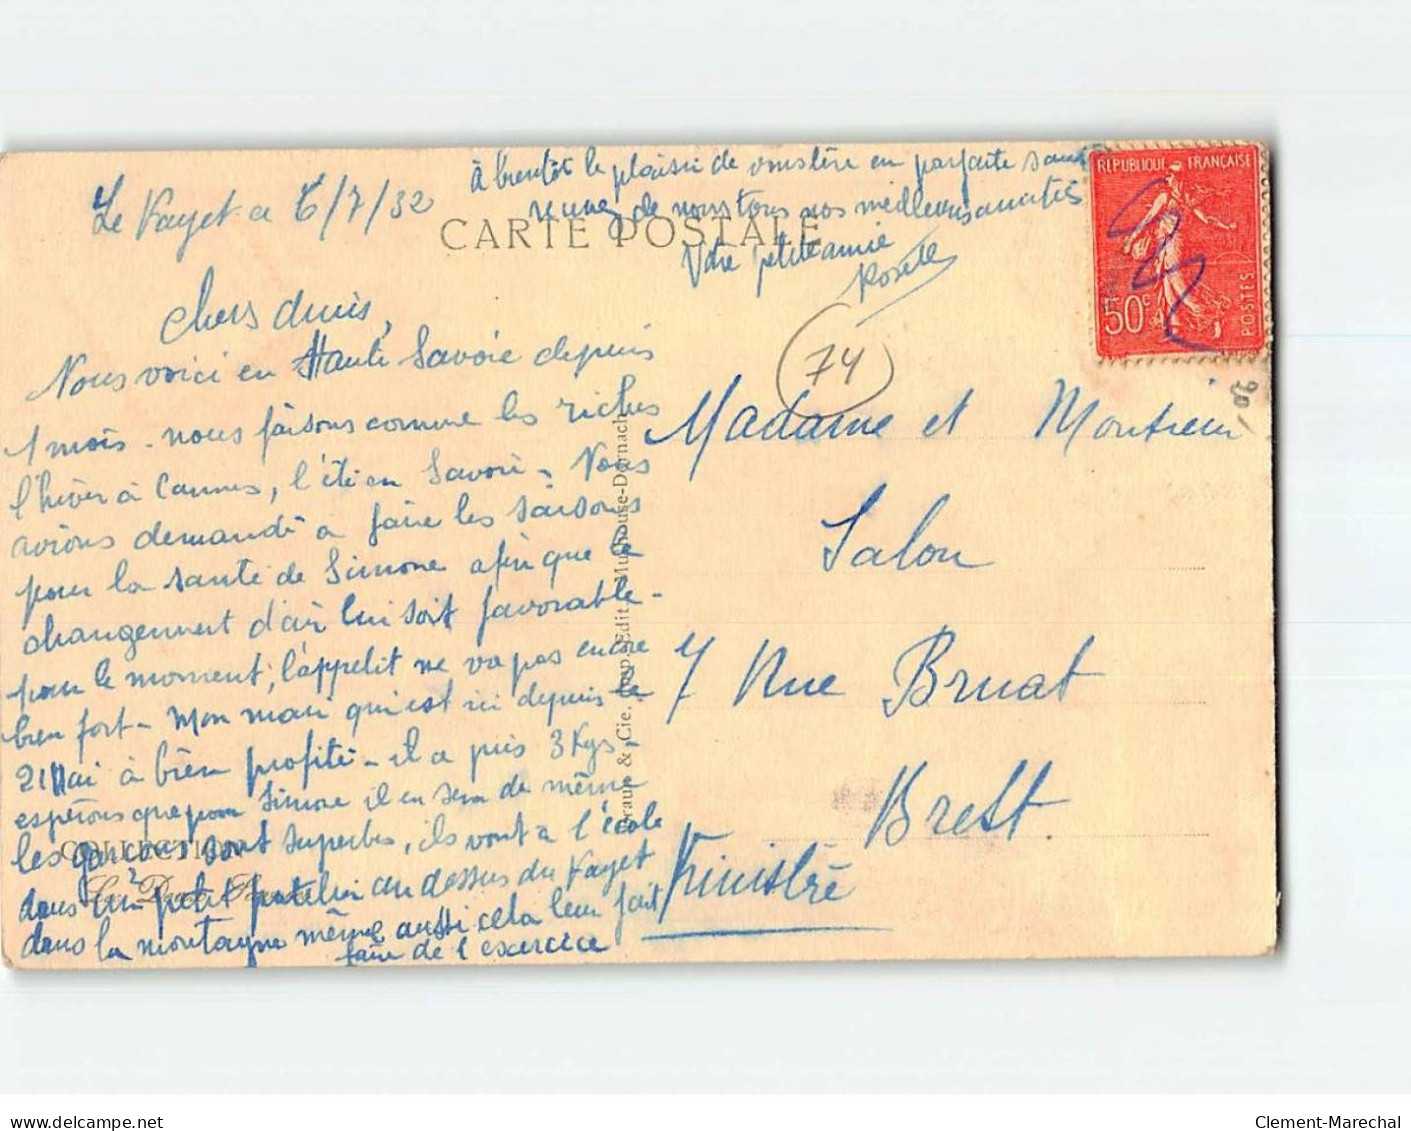 Le Fayet a 6/7/32
à bientôt le plaisir de vous lire en parfaite santé
de nous tous nos meilleurs amitiés
Votre petite amie
CARTE POSTALE
REPUBLIQUE FRANÇAISE
50c
POSTES
Chers amis,
Nous voici en Haute Savoie depuis
1 mois - nous faisons comme les riches
l'hiver à Cannes, l'été en Savoie - Nous
avions demandé a faire les saisons
pour la santé de Simone afin que le
changement d'air lui soit favorable -
pour le moment, l'appetit ne va pas encore
bien fort - Mon mari qui est ici depuis le
21 Mai à bien profité - il a pris 3 Kgs -
espérons que pour Simone il en sera de même
les garçons sont superbes, ils vont a l'école
dans un petit patelin au dessus du Fayet
dans la montagne même aussi cela leur fait
faire de l'exercice
74
20
Madame et Monsieur
Salou
7 Rue Bruat
Brest.
Finistère
Braun & Cie, Imp. Edit. Mulhouse-Dornach
COLLECTION
Clement-Marechal
www.delcampe.net